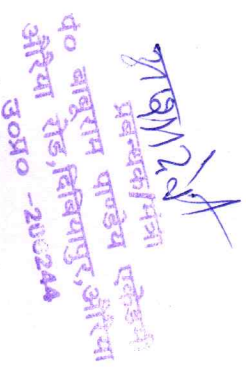 प्रबन्धक/मंत्री
पं० बाबूराम पाण्डेय एकेडमी
औरैया रोड, दिबियापुर, औरैया
उ०प्र० -206244